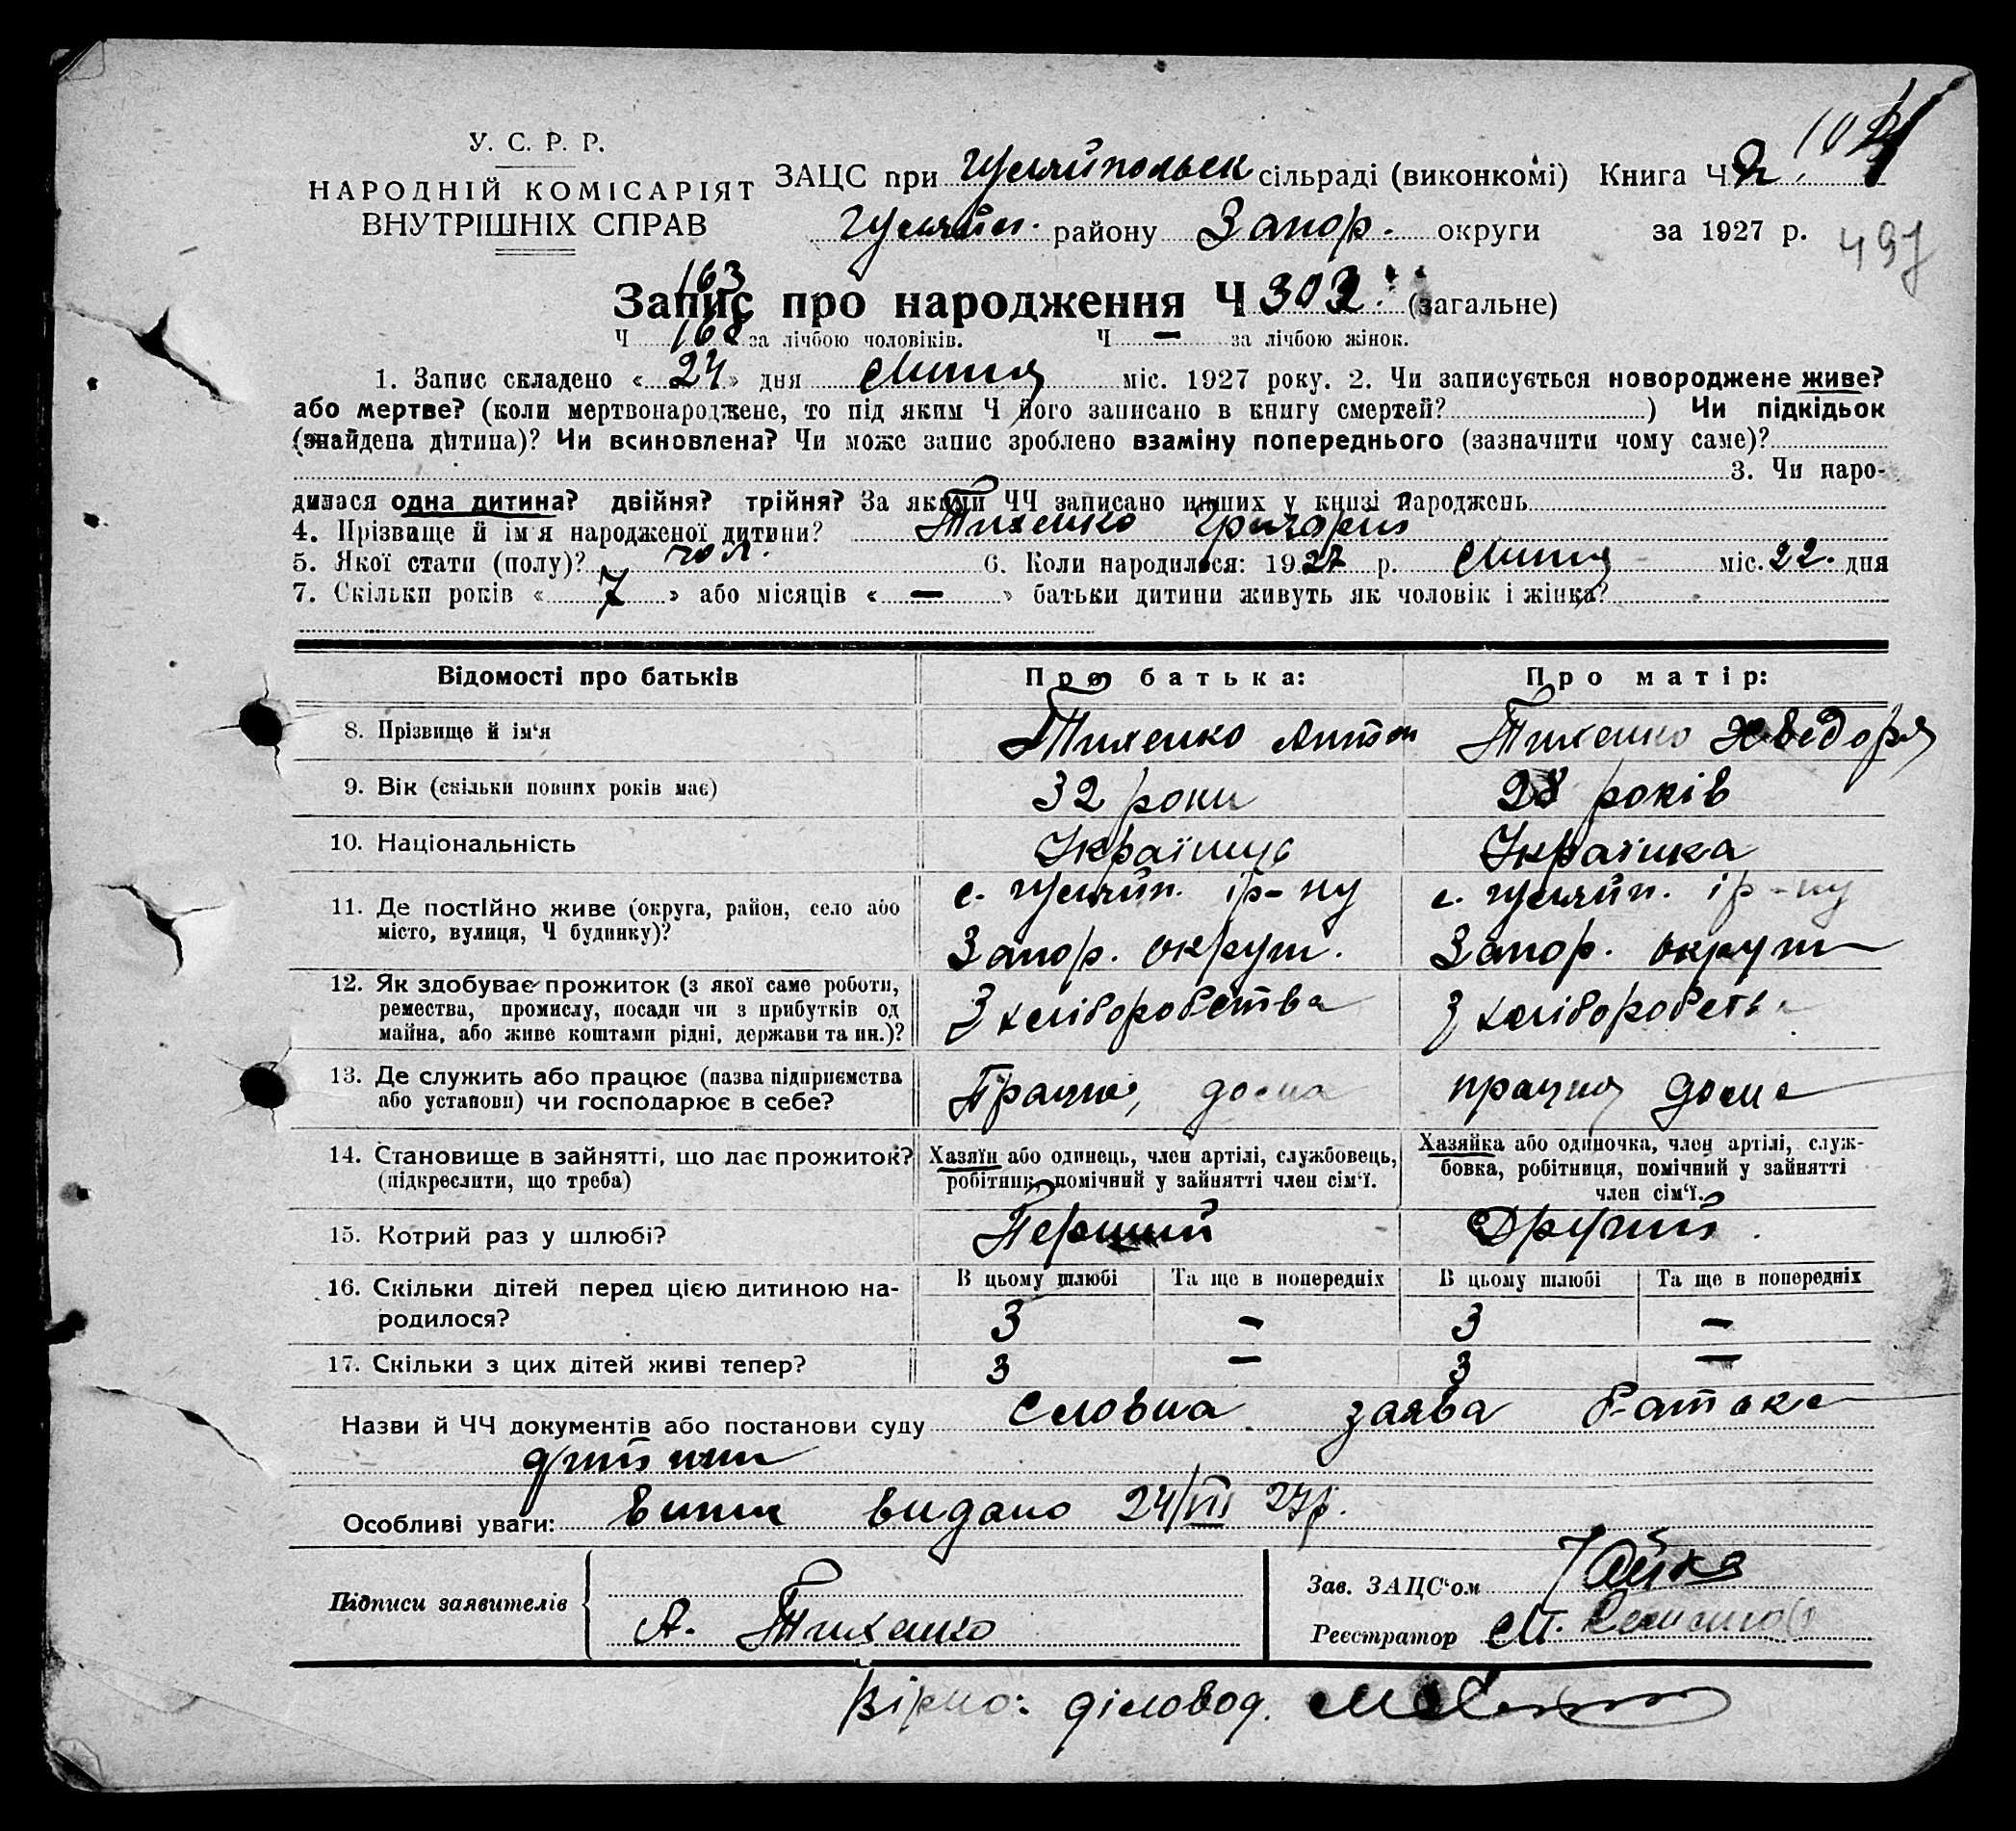 У. С. Р. Р.
НАРОДНІЙ КОМІСАРІЯТ
ВНУТРІШНІХ СПРАВ
ЗАЦС при Гуляйпольск сільраді (виконкомі) Книга Ч 2.
Гуляйп. району Запор. округи за 1927 р.
497
163
Запис про народження Ч 302. (загальне)
Ч 168 за лічбою чоловіків. Ч — за лічбою жінок.
1. Запис складено « 24 » дня Липня міс. 1927 року. 2. Чи записується новороджене живе?
або мертве? (коли мертвонароджене, то під яким Ч його записано в книгу смертей? ) Чи підкідьок
(знайдена дитина)? Чи всиновлена? Чи може запис зроблено взаміну попереднього (зазначити чому саме)?
3. Чи наро-
дилася одна дитина? двійня? трійня? За якими ЧЧ записано инших у книзі народжень
4. Прізвище й ім'я народженої дитини? Тихенко Григорій
5. Якої стати (полу)? чол. 6. Коли народилося: 1927 р. Липня міс. 22. дня
7. Скільки років « 7 » або місяців « — » батьки дитини живуть як чоловік і жінка?
Відомості про батьків Про батька: Про матір:
8. Прізвище й ім'я Тихенко Антон Тихенко Хведоря
9. Вік (скільки повних років має) 32 роки 28 років
10. Національність Українець Українка
11. Де постійно живе (округа, район, село або місто, вулиця, Ч будинку)? с. Гуляйп. р-ну Запор. округи. с. Гуляйп. р-ну Запор. округи
12. Як здобуває прожиток (з якої саме роботи,
ремества, промислу, посади чи з прибутків од
майна, або живе коштами рідні, держави та ин.)? З хліборобства З хліборобства
13. Де служить або працює (назва підприємства
або установи) чи господарює в себе? Працює, дома працює дома
14. Становище в зайнятті, що дає прожиток?
(підкреслити, що треба)
Хазяїн або одинець, член артілі, службовець,
робітник, помічний у зайнятті член сім'ї.
Хазяйка або одиночка, член артілі, служ-
бовка, робітниця, помічний у зайнятті
член сім'ї.
15. Котрий раз у шлюбі? Перший Другий.
16. Скільки дітей перед цією дитиною на-
родилося?
В цьому шлюбі Та ще в попередніх В цьому шлюбі Та ще в попередніх
3 — 3 —
17. Скільки з цих дітей живі тепер? 3 — 3 —
Назви й ЧЧ документів або постанови суду Словна заява батька
дитини
Особливі уваги: Випис видано 24/VII 27р.
Підписи заявителів
А. Тихенко
Зав. ЗАЦС'ом
Реєстратор
Вірно: діловод.